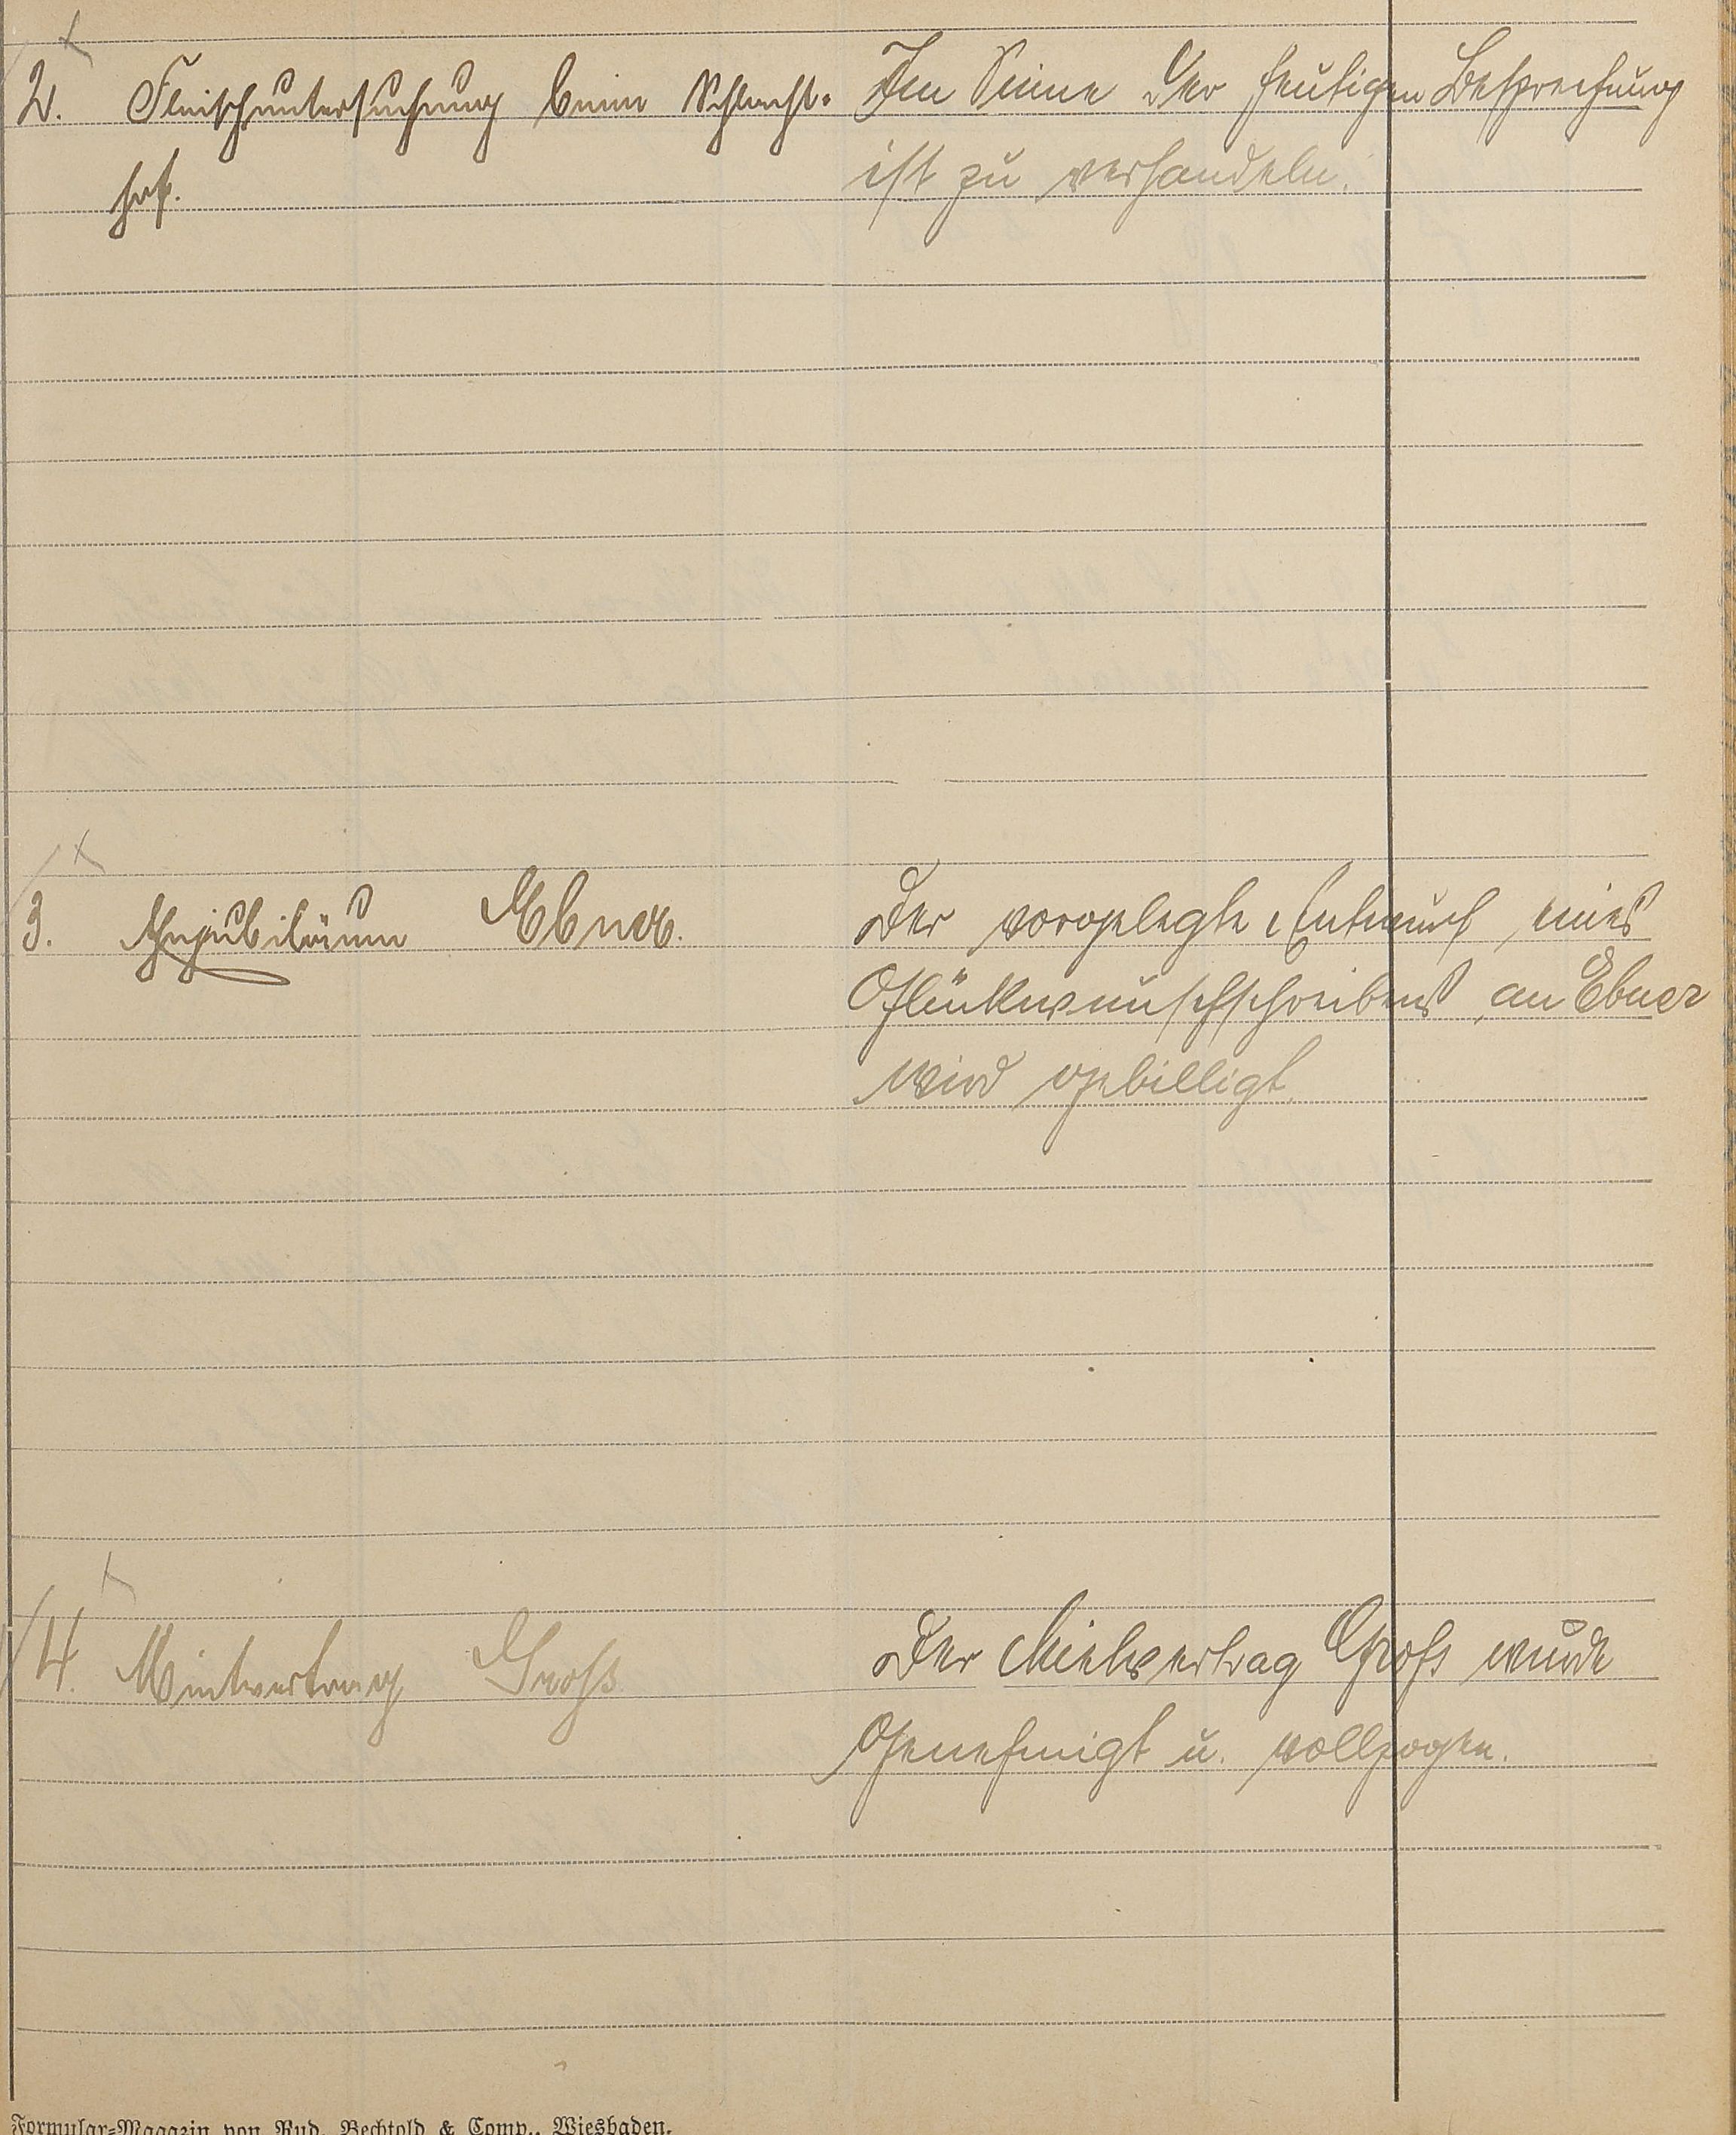 2. Fleischuntersuchung beim Schlacht-
hof.
Im Sinne der heutigen Besprechung
ist zu verhandeln.
3. Ehejubiläum Ebner.
Der vorgelegte Entwurf eines
Glückwunschschreibens an Ebner
wird gebilligt.
4. Mietvertrag Gross
Der Mietvertrag Gross wurde
Genehmigt u. vollzogen.
Formular-Magazin von Rud. Bechtold & Comp., Wiesbaden.